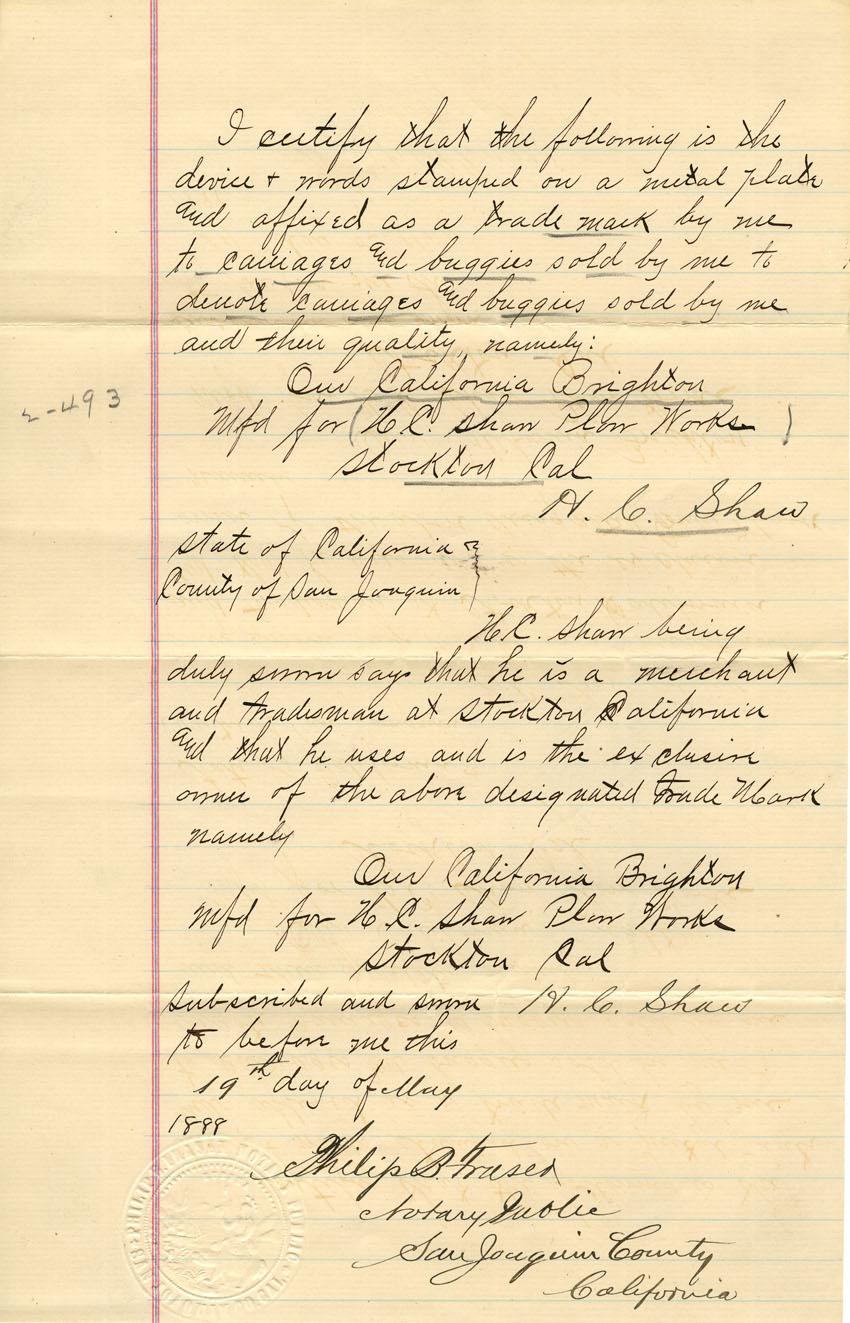 I certify that the following is the
device + words stamped on a metal plate
and affixed as a trade mark by me
to carriages and buggies sold by me to
denote carriages and buggies sold by me
and their quality, namely:
Our California Brighton
2-493
Mfd for (H.C. Shaw Plow Works)
Stockton Cal
H. C. Shaw
State of California
County of San Joaquin }
H.C. Shaw being
duly sworn says that he is a merchant
and tradesman at Stockton California
and that he uses and is the exclusive
owner of the above designated Trade Mark
namely
Our California Brighton
Mfd for H.C. Shaw Plow Works
Stockton Cal
Subscribed and sworn H. C. Shaw
to before me this
19th day of May
Philip B. Fraser
Notary Public
San Joaquin County
California